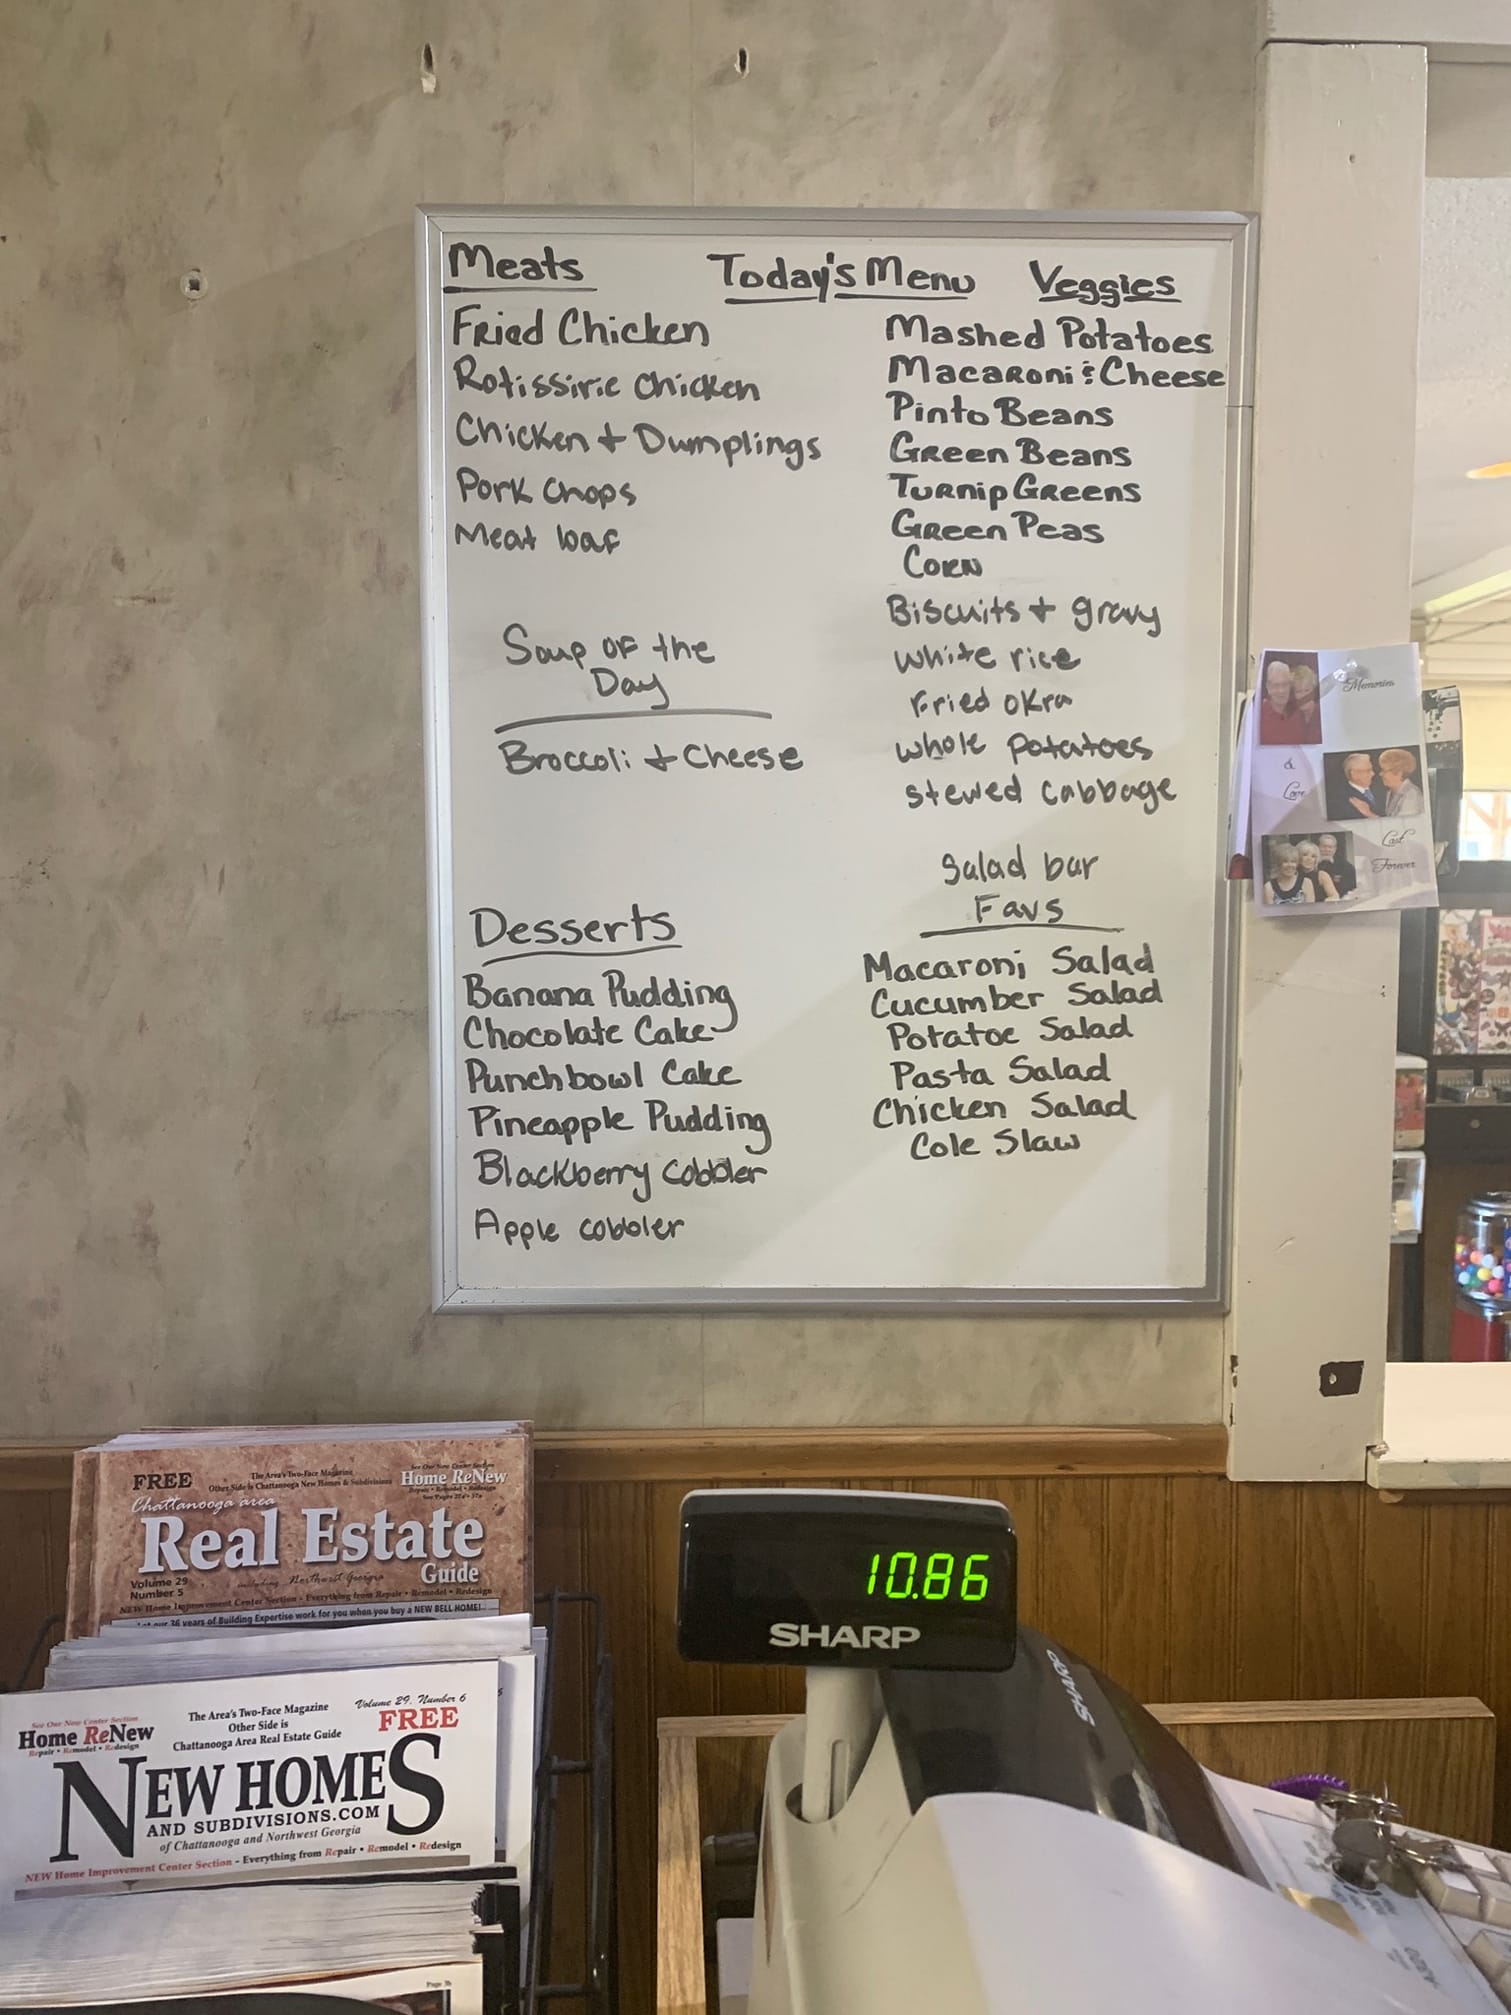 Meats
Today's Menu
Veggies
Fried Chicken
Rotissirie Chicken
Chicken + Dumplings
Pork Chops
Meat loaf
Soup of the
Day
Broccoli + Cheese
Desserts
Banana Pudding
Chocolate Cake
Punchbowl Cake
Pineapple Pudding
Blackberry cobbler
Apple cobbler
Mashed Potatoes
Macaroni & Cheese
Pinto Beans
Green Beans
Turnip Greens
Green Peas
Corn
Biscuits + gravy
white rice
Fried okra
whole potatoes
stewed cabbage
Salad bar
Favs
Macaroni Salad
Cucumber Salad
Potatoe Salad
Pasta Salad
Chicken Salad
Cole Slaw
Memories
&
Love
Last
Forever
FREE
The Area's Two-Face Magazine
Other Side is Chattanooga New Homes & Subdivisions
See Our New Center Section
Home ReNew
Repair • Remodel • Redesign
Chattanooga area
Real Estate
Guide
Volume 29
Number 5
including Northwest Georgia
NEW Home Improvement Center Section - Everything from Repair • Remodel • Redesign
36 years of Building Expertise work for you when you buy a NEW BELL HOME!
See Our New Center Section
Home ReNew
Repair • Remodel • Redesign
The Area's Two-Face Magazine
Other Side is
Chattanooga Area Real Estate Guide
Volume 29, Number 6
FREE
NEW HOMES
AND SUBDIVISIONS.COM
of Chattanooga and Northwest Georgia
NEW Home Improvement Center Section - Everything from Repair • Remodel • Redesign
10.86
SHARP
SHARP